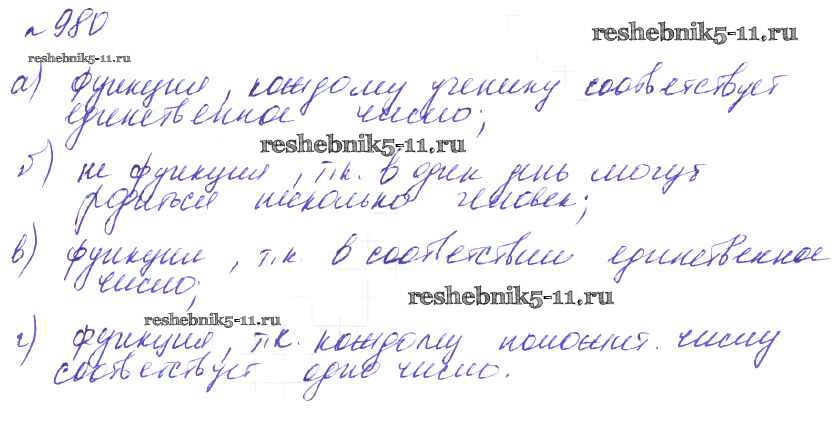 № 980
reshebnik5-11.ru
reshebnik5-11.ru
а) функция, каждому ученику соответствует
единственное число;
reshebnik5-11.ru
б) не функция, т.к. в один день могут
родиться несколько человек;
в) функция, т.к. в соответствии единственное
число;
reshebnik5-11.ru
reshebnik5-11.ru
г) функция, т.к. каждому положит. числу
соответствует одно число.